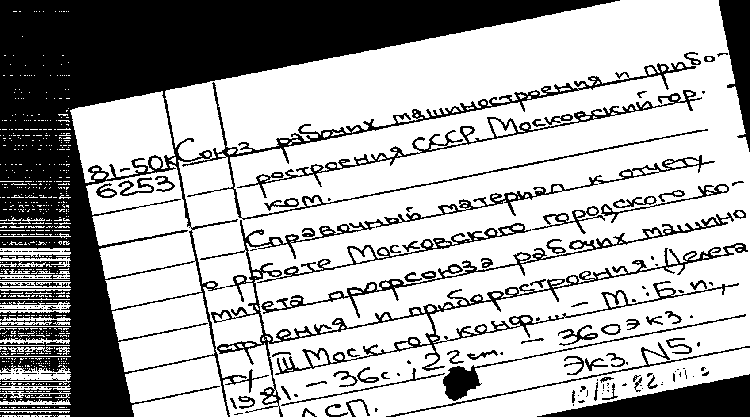 81-50К Союз рабочих машиностроения и прибо-
6253 ростроения СССР. Московский гор.
ком.
Справочный материал к отчету
о работе Московского городского ко-
митета профсоюза рабочих машино
строения и приборостроения: (Делега
ту III Моск. гор. конф... – М.: Б.и.,
1981. – 36с.; 22см. – 360экз.
ДСП. Экз. N5.